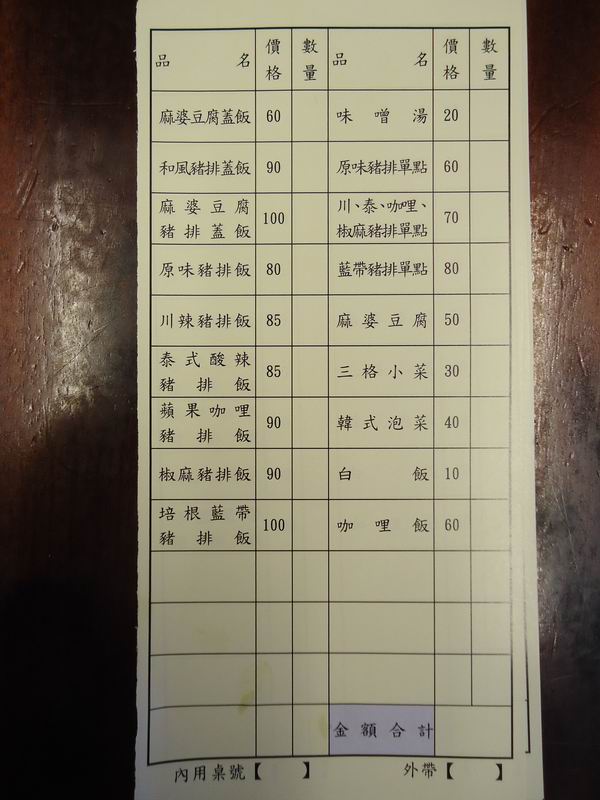 品名 價格 數量 品名 價格 數量
麻婆豆腐蓋飯 60 味噌湯 20
和風豬排蓋飯 90 原味豬排單點 60
麻婆豆腐 川、泰、咖哩、
豬排蓋飯 100 椒麻豬排單點 70
原味豬排飯 80 藍帶豬排單點 80
川辣豬排飯 85 麻婆豆腐 50
泰式酸辣
豬排飯 85 三格小菜 30
蘋果咖哩
豬排飯 90 韓式泡菜 40
椒麻豬排飯 90 白飯 10
培根藍帶
豬排飯 100 咖哩飯 60
金額合計
內用桌號【 】 外帶【 】